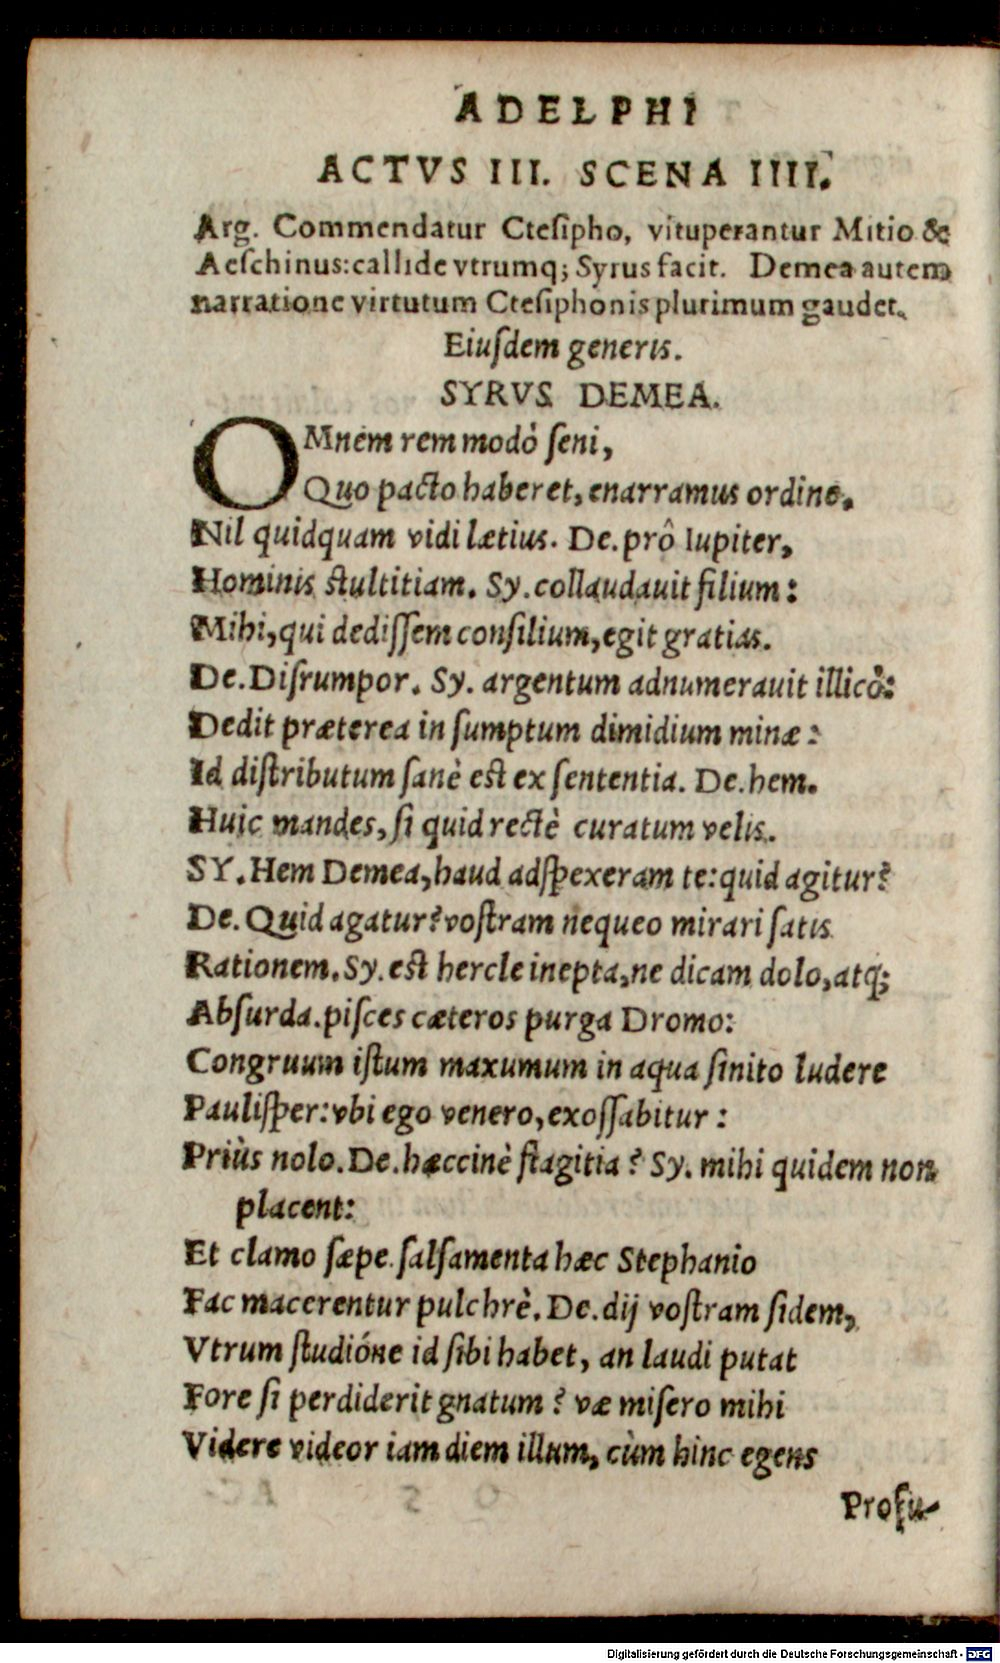 ADELPHI
ACTVS III. SCENA IIII.
Arg. Commendatur Cteſipho, vituperantur Mitio &
Aeſchinus: callide vtrumq; Syrus facit. Demea autem
narratione virtutum Cteſiphonis plurimum gaudet.
Eiuſdem generis.
SYRVS DEMEA.
OMnem rem modò ſeni,
Quo pacto haberet, enarramus ordine.
Nil quidquam vidi lætius. De. prô Iupiter,
Hominis ſtultitiam. Sy. collaudauit filium:
Mihi, qui dediſſem conſilium, egit gratias.
De. Diſrumpor. Sy. argentum adnumerauit illicò:
Dedit præterea in ſumptum dimidium minæ:
Id diſtributum ſanè eſt ex ſententia. De. hem.
Huic mandes, ſi quid rectè curatum velis.
SY. Hem Demea, haud adſpexeram te: quid agitur?
De. Quid agatur? voſtram nequeo mirari ſatis
Rationem. Sy. eſt hercle inepta, ne dicam dolo, atq;
Abſurda. piſces cæteros purga Dromo:
Congruum iſtum maxumum in aqua ſinito ludere
Pauliſper: vbi ego venero, exoſſabitur:
Priùs nolo. De. hæccinè flagitia? Sy. mihi quidem non
placent:
Et clamo ſæpe. ſalſamenta hæc Stephanio
Fac macerentur pulchrè. De. dij voſtram fidem,
Vtrum ſtudióne id ſibi habet, an laudi putat
Fore ſi perdiderit gnatum? væ miſero mihi
Videre videor iam diem illum, cùm hinc egens
Profu-
Digitalisierung gefördert durch die Deutsche Forschungsgemeinschaft - DFG